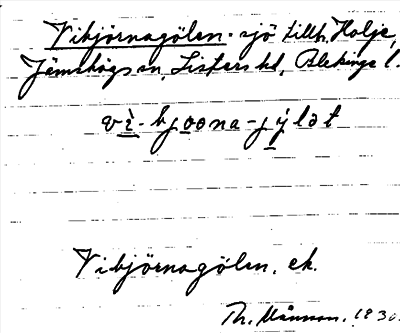 Vibjörnagölen - sjö tillh. Holje,
Jämshögs sn, Listers hd, Blekinge l.
vì-bjoona-jýlət
Vibjörnagölen, ek.
Th. Månsson. 1930.